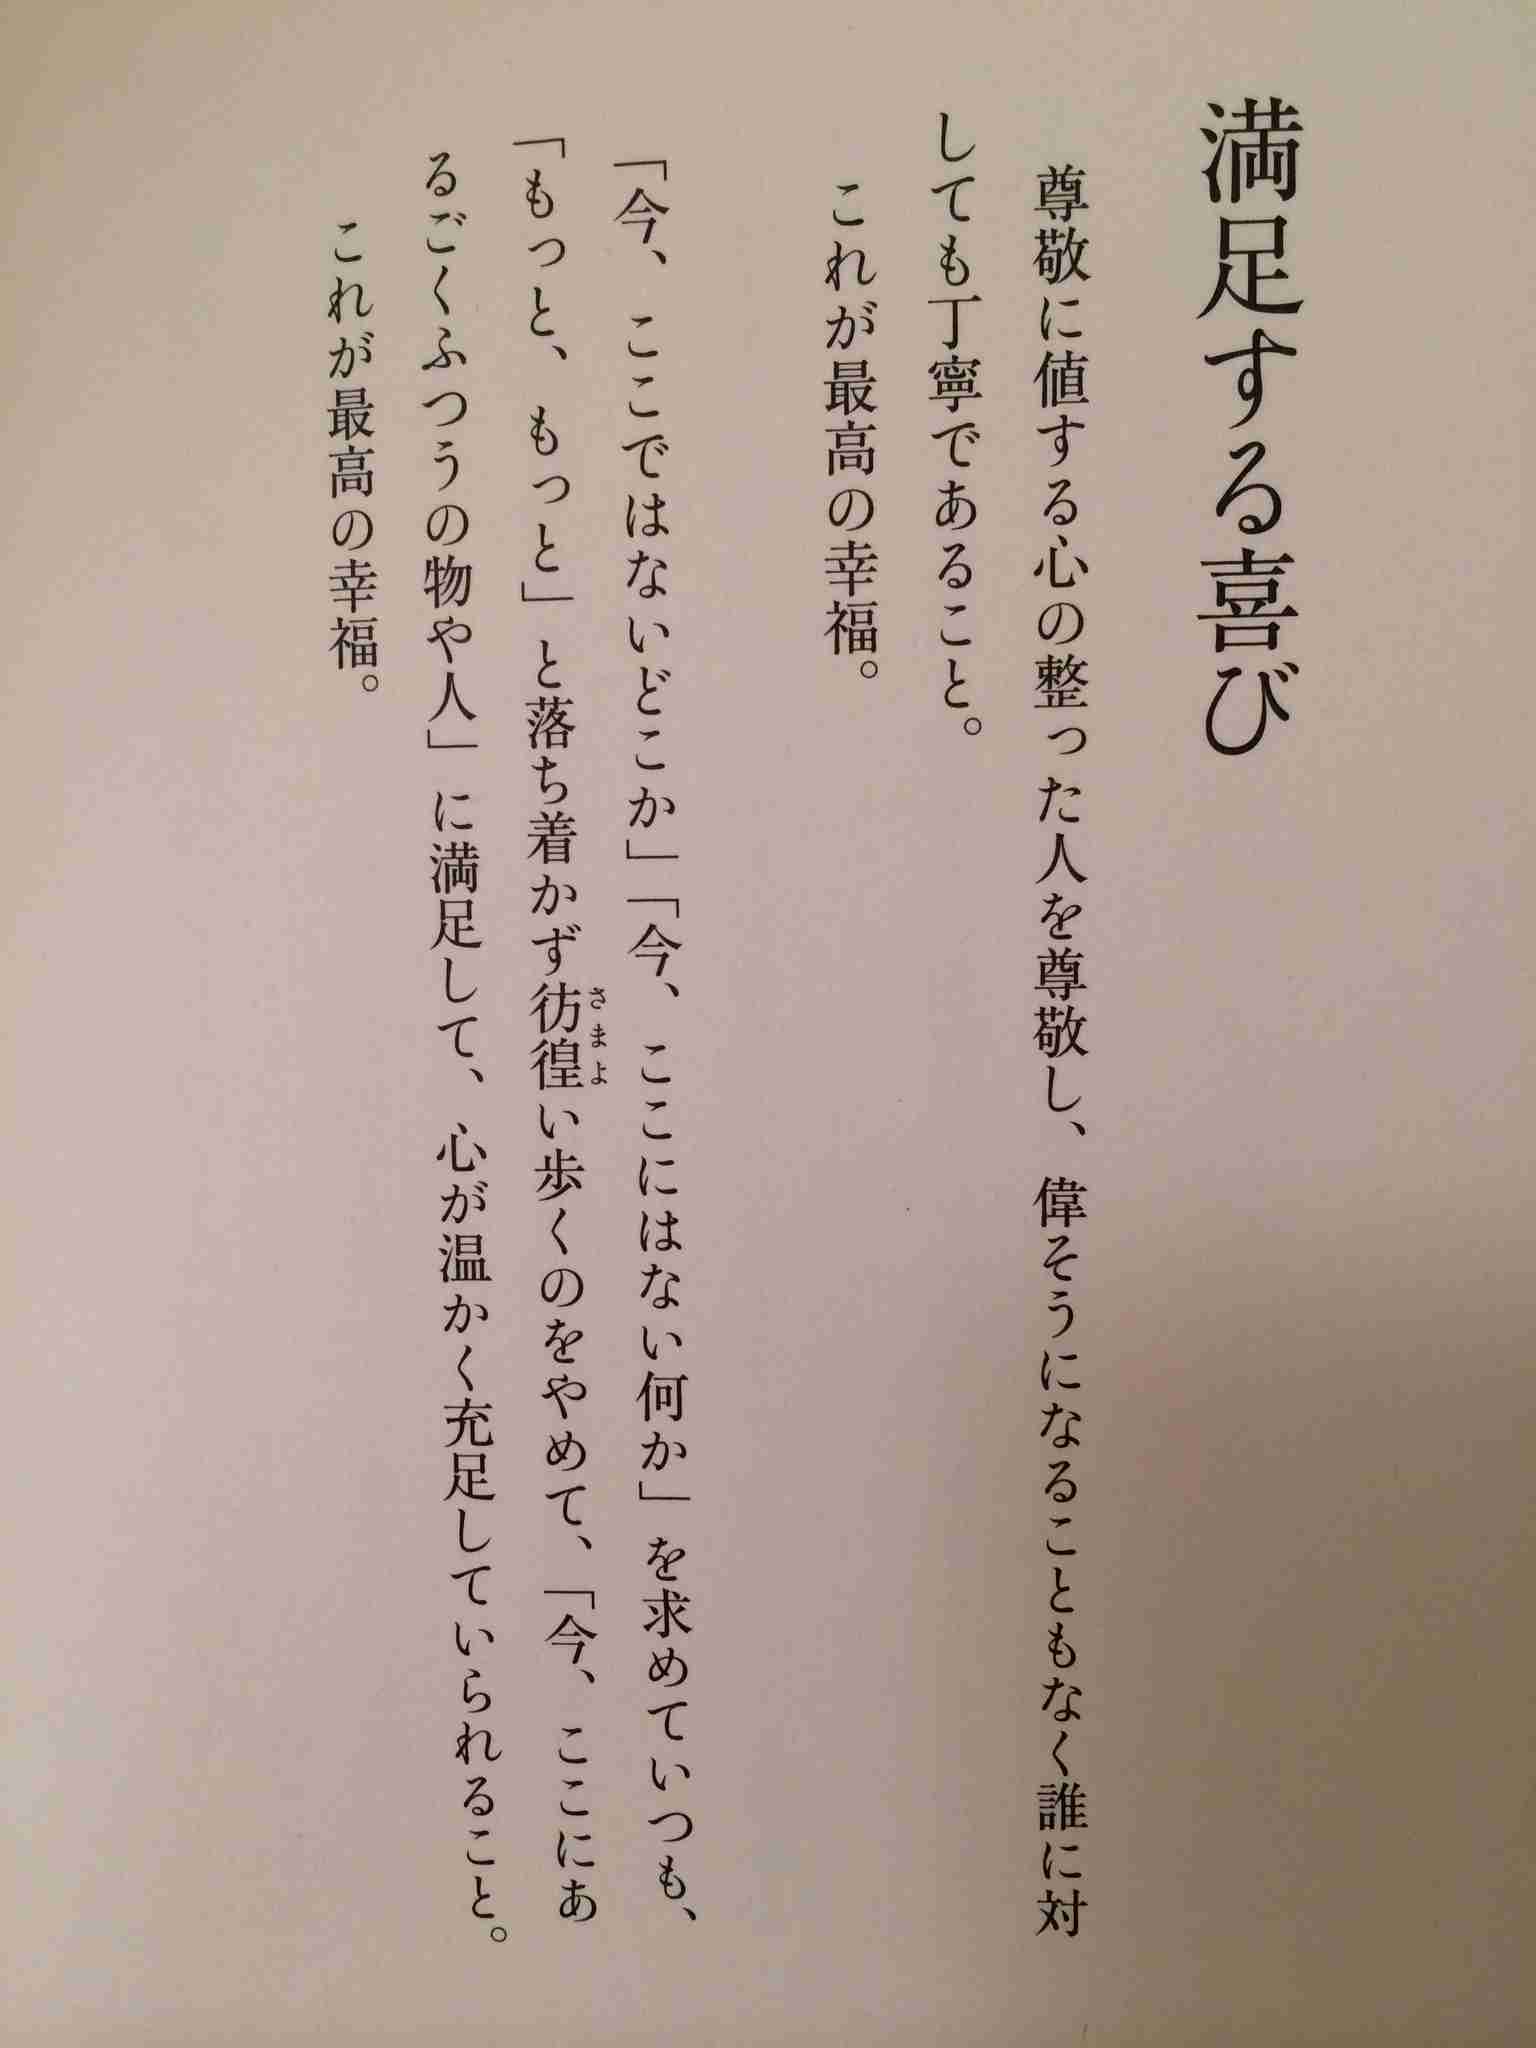 満足する喜び
尊敬に値する心の整った人を尊敬し、偉そうになることもなく誰に対
しても丁寧であること。
これが最高の幸福。
「今、ここではないどこか」「今、ここにはない何か」を求めていつも、
「もっと、もっと」と落ち着かず彷徨い歩くのをやめて、「今、ここにあ
さまよ
るごくふつうの物や人」に満足して、心が温かく充足していられること。
これが最高の幸福。